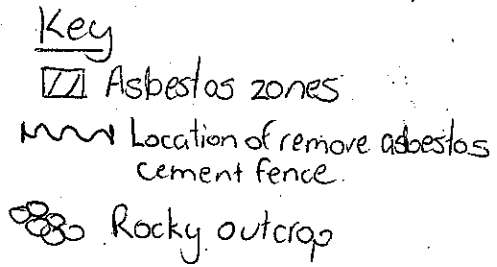 Key
Asbestos zones
Location of remove asbestos
cement fence.
Rocky outcrop